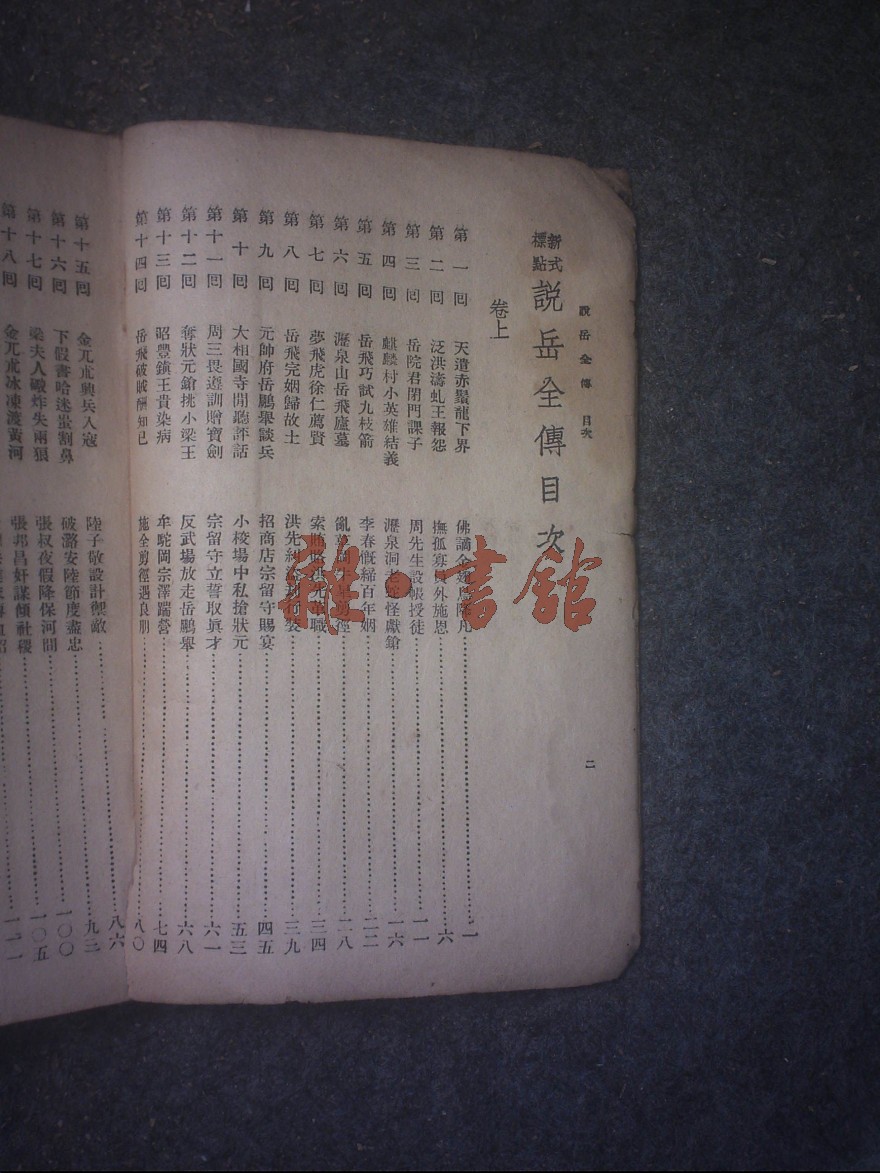 說岳全傳 目次 二
新式
標點
說岳全傳目次
卷上
第一回 天遣赤鬚龍下界 佛謫金翅鳥降凡 一
第二回 泛洪濤虬王報怨 撫孤寡員外施恩 六
第三回 岳院君閉門課子 周先生設帳授徒 一一
第四回 麒麟村小英雄結義 瀝泉洞老蛇怪獻鎗 一六
第五回 岳飛巧試九枝箭 李春慨締百年姻 二二
第六回 瀝泉山岳飛廬墓 亂草岡 徑 二八
第七回 夢飛虎徐仁薦賢 索賄賂洪先革職 三四
第八回 岳飛完姻歸故土 洪先糾 行裝 三九
第九回 元帥府岳鵬舉談兵 招商店宗留守賜宴 四五
第十回 大相國寺閒聽評話 小校場中私搶狀元 五三
第十一回 周三畏遵訓贈寶劍 宗留守立誓取眞才 六一
第十二回 奪狀元鎗挑小梁王 反武場放走岳鵬舉 六八
第十三回 昭豐鎮王貴染病 牟駝岡宗澤踹營 七四
第十四回 岳飛破賊酬知己 施全剪徑遇良朋 八〇
第十五回 金兀朮興兵入寇 陸子敬設計禦敵 八六
第十六回 下假書哈迷蚩割鼻 破潞安陸節度盡忠 九三
第十七回 梁夫人砲炸失兩狼 張叔夜假降保河間 一〇〇
第十八回 金兀朮冰凍渡黃河 張邦昌奸謀傾社稷 一〇五
一一一
雅書館